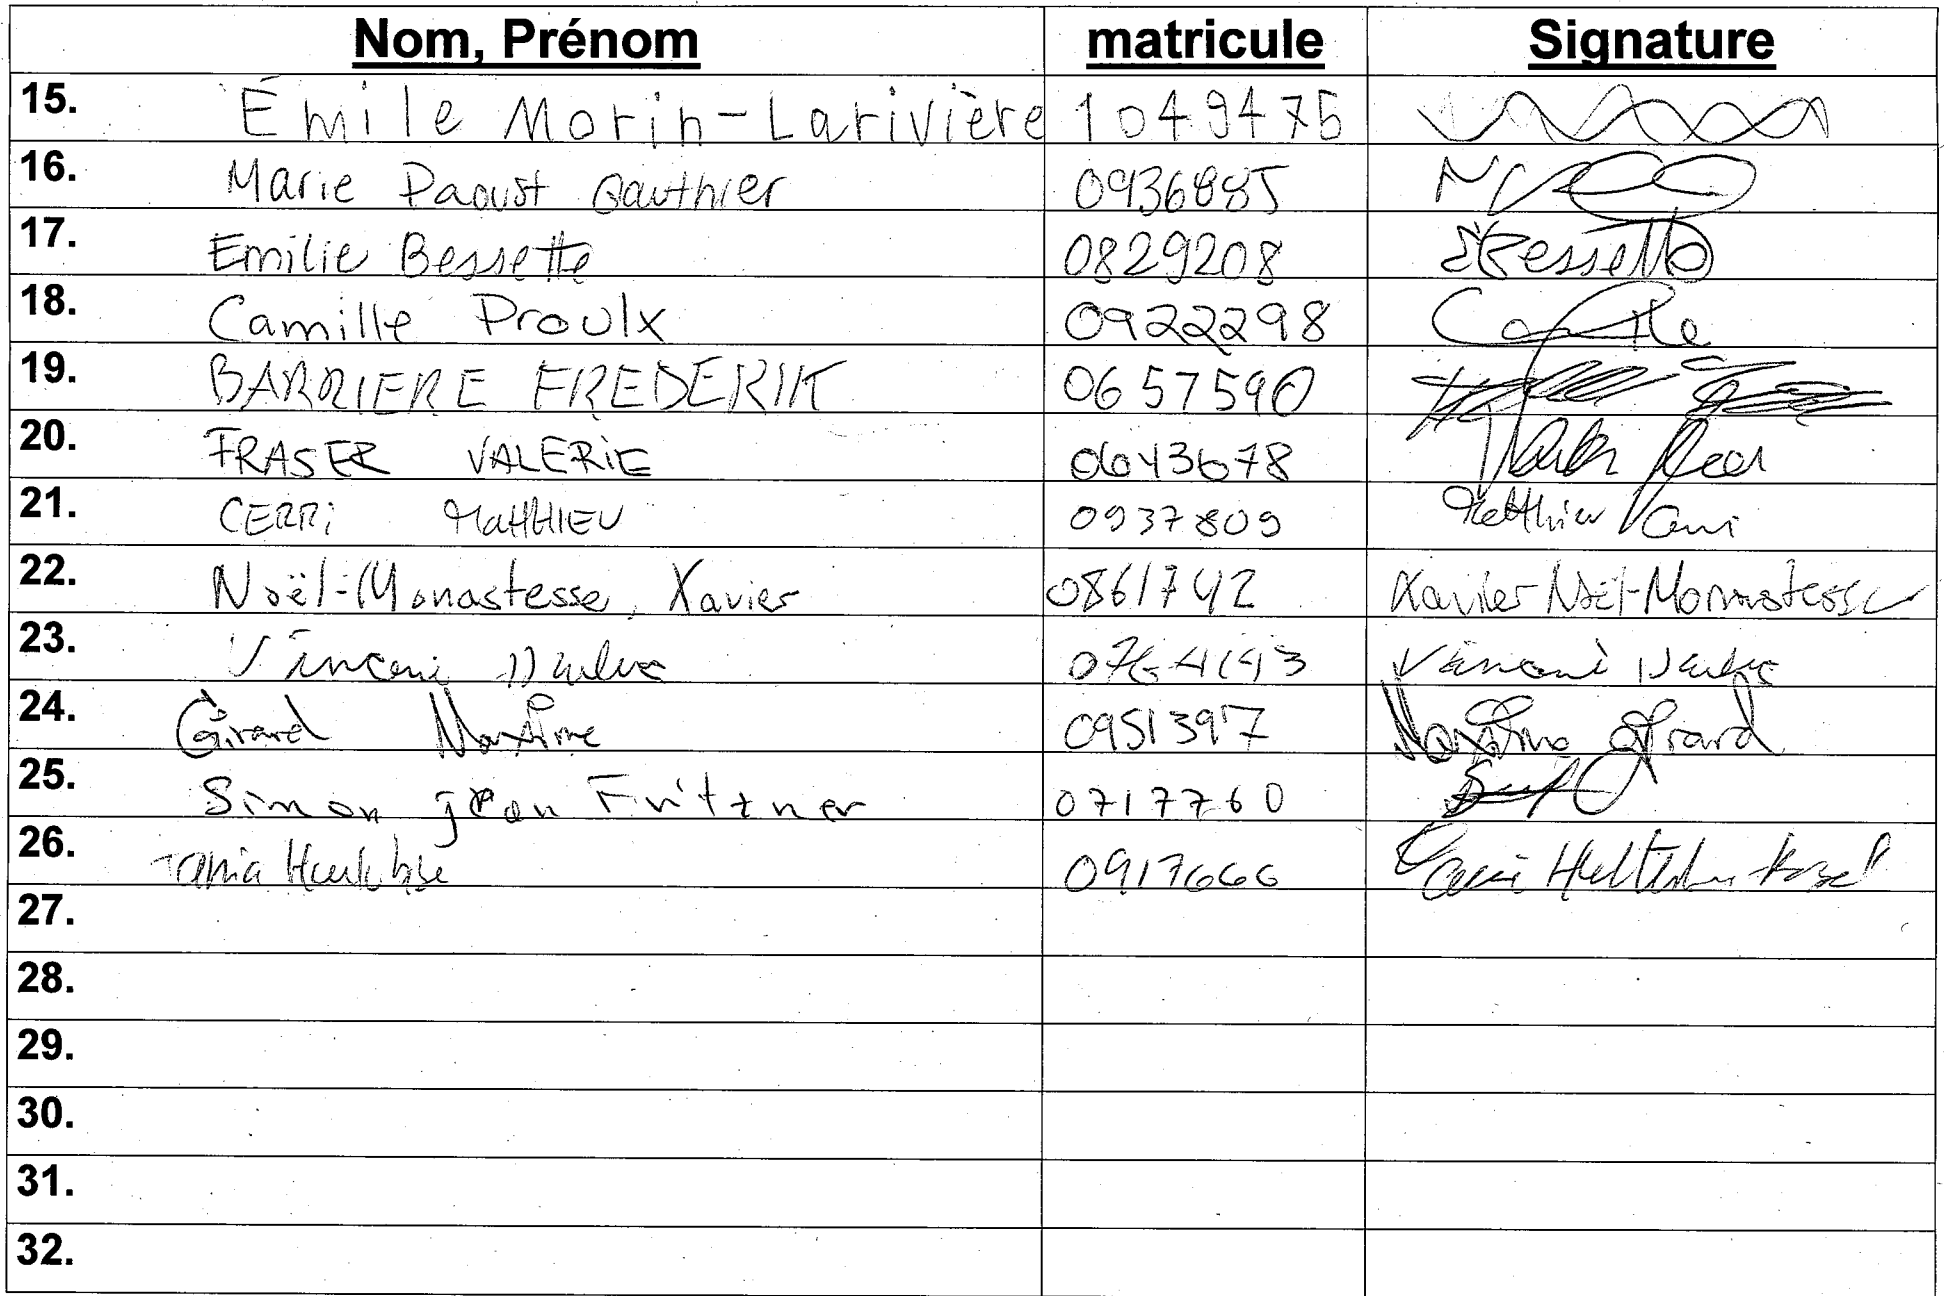 Nom, Prénom matricule Signature
15. Émile Morin-Larivière 1049475
16. Marie Daoust Gauthier 0936885
17. Emilie Bessette 0829208 EBessette
18. Camille Proulx 0922298 Camille
19. BARRIERE FREDERIK 0657590
20. FRASER VALERIE 0643678
21. CERRi MattHIEU 0937809 Matthieu Cerri
22. Noël-Monastesse, Xavier 0861742 Xavier Noël-Monastesse
23. Vincent
24. Girard Maxime 0951397 Maxime Girard
25. Simon jean Fritzner 0717760
26. Tania 0917666
27.
28.
29.
30.
31.
32.